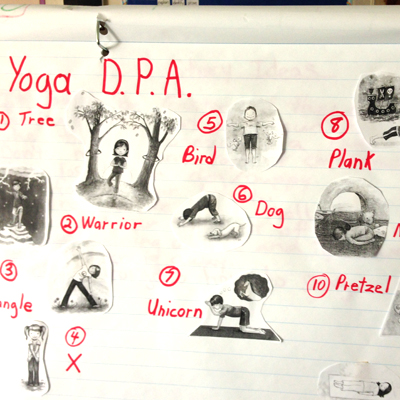 Yoga D.P.A.
① Tree
② Warrior
③
angle
④
X
⑤
Bird
⑥
Dog
⑦
Unicorn
⑧
Plank
⑩ Pretzel